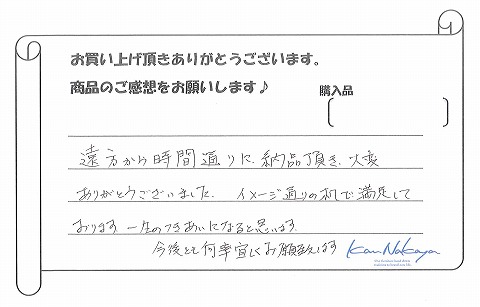 お買い上げ頂きありがとうございます。
商品のご感想をお願いします♪
購入品
遠方から時間通りに、納品頂き、大変
ありがとうございました。 イメージ通りの机で満足して
おります 一生のつきあいになると思います。
今後とも何卒宜しくお願い致します
Kan Nakaya